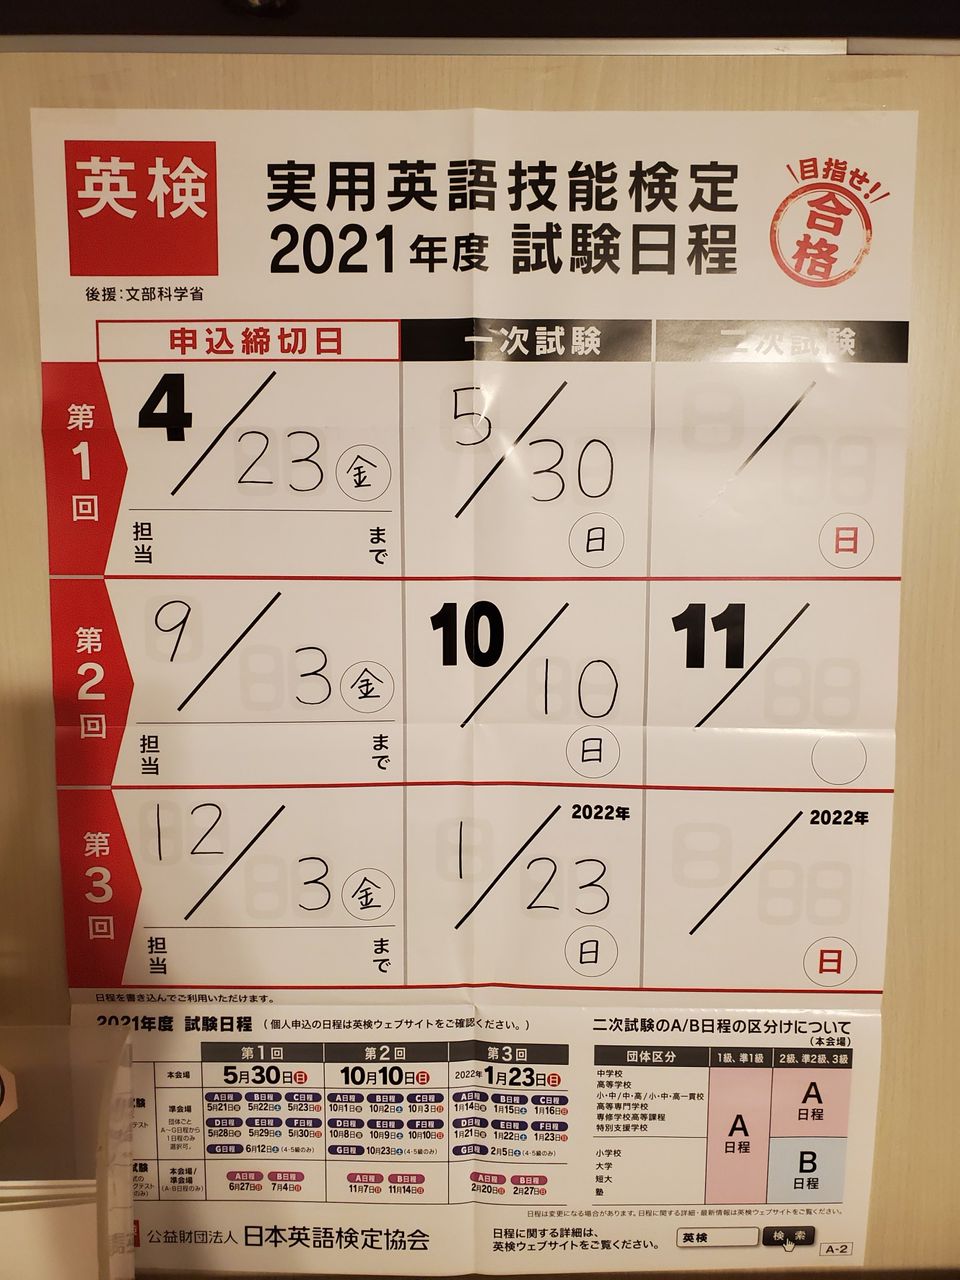 英検
実用英語技能検定
2021年度 試験日程
目指せ!!
合格
後援：文部科学省
申込締切日
一次試験
二次試験
第1回
4/23 金
担当 まで
5/30
日
/
日
第2回
9/3 金
担当 まで
10/10
日
11/
第3回
12/3 金
担当 まで
2022年
1/23
日
2022年
/
日
日程を書き込んでご利用いただけます。
2021年度 試験日程 （個人申込の日程は英検ウェブサイトをご確認ください。）
第1回 第2回 第3回
本会場 5月30日日 10月10日日 2022年1月23日日
準会場
団体ごと
A～G日程から
1日程のみ
選択可。
A日程 B日程 C日程 A日程 B日程 C日程 A日程 B日程 C日程
5月21日金 5月22日土 5月23日日 10月1日金 10月2日土 10月3日日 1月14日金 1月15日土 1月16日日
D日程 E日程 F日程 D日程 E日程 F日程 D日程 E日程 F日程
5月28日金 5月29日土 5月30日日 10月8日金 10月9日土 10月10日日 1月21日金 1月22日土 1月23日日
G日程 6月12日土（4・5級のみ） G日程 10月23日土（4・5級のみ） G日程 2月5日土（4・5級のみ）
本会場/
準会場
（A・B日程のみ）
A日程 B日程 A日程 B日程 A日程 B日程
6月27日日 7月4日日 11月7日日 11月14日日 2月20日日 2月27日日
二次試験のA/B日程の区分けについて
（本会場）
団体区分 1級、準1級 2級、準2級、3級
中学校
高等学校
小・中/中・高/小・中・高一貫校
高等専門学校
専修学校高等課程
特別支援学校
小学校
大学
短大
塾
A
日程
A
日程
B
日程
日程は変更になる場合があります。日程に関する詳細・最新情報は英検ウェブサイトをご覧ください。
公益財団法人 日本英語検定協会
日程に関する詳細は、
英検ウェブサイトをご覧ください。
英検 検索
A-2